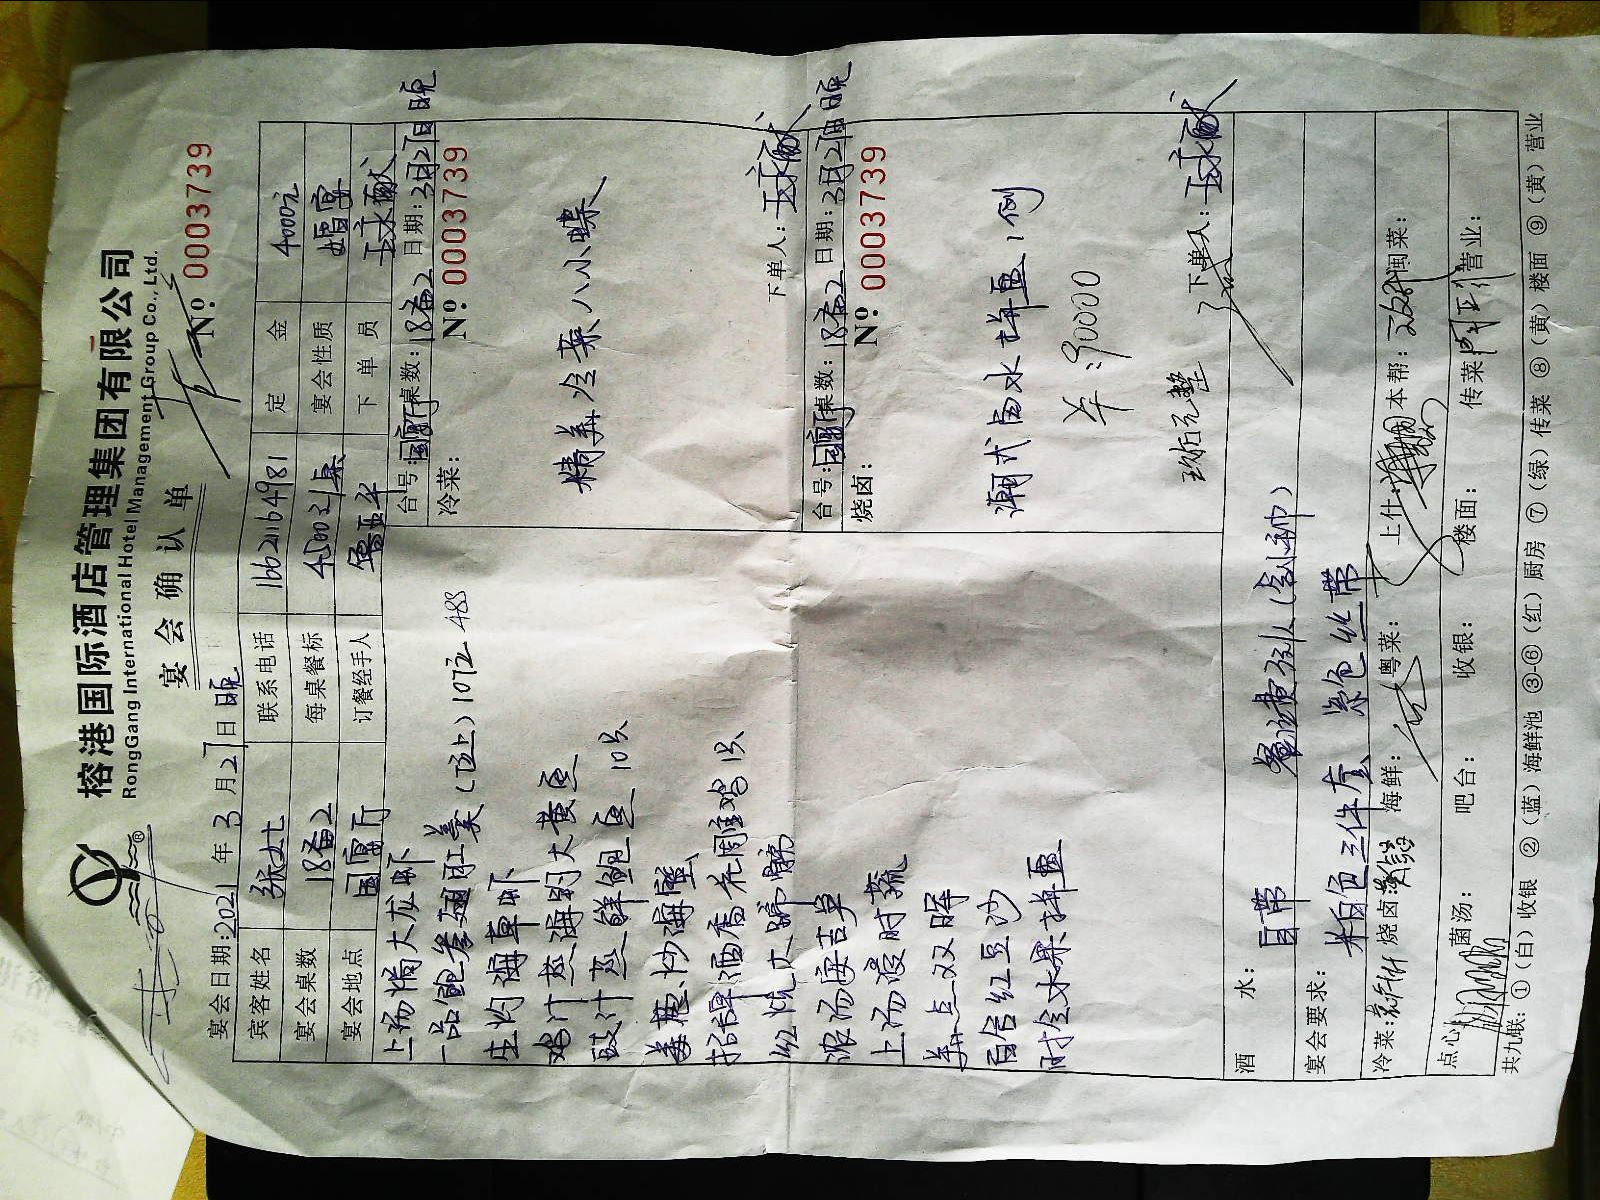 榕港国际酒店管理集团有限公司
RongGang International Hotel Management Group Co., Ltd.
宴会确认单
№ 0003739
宴会日期:2021年3月21日晚
宾客姓名 张女士 联系电话 1662164981 定金 4000元
宴会桌数 18备2 每桌餐标 4500 宴会性质 婚宴
宴会地点 国宴厅 订餐经手人 下单员
上汤焗大龙虾
一品鲍参翅肚羹(位上)10位
生灼海草虾
鸡汁蒸海钓大黄鱼
豉汁蒸鲜鲍鱼10只
姜葱炒海蟹
招牌酒香花雕鸡1只
红烧大蹄髈
浓汤娃
上汤浸时蔬
美点双晖
百合红豆沙
时令水果拼盘
台号:国宴厅 桌数:18备2 日期:3月21日晚
冷菜: № 0003739
精美冷菜八小碟
下单人:
台号:国宴厅 桌数:18备2 日期:3月21日晚
烧卤: № 0003739
潮式卤水拼盘1例
羊:90000
玖万元整
下单人:
酒水: 自带 餐费
宴会要求: 米白色三件套 紫色丝带
冷菜: 烧卤: 海鲜: 粤菜: 上什: 本帮: 闽菜:
点心: 菌汤: 吧台: 收银: 楼面: 传菜: 营业:
共九联:①(白)收银 ②(蓝)海鲜池 ③-⑥(红)厨房 ⑦(绿)传菜 ⑧(黄)楼面 ⑨(黄)营业